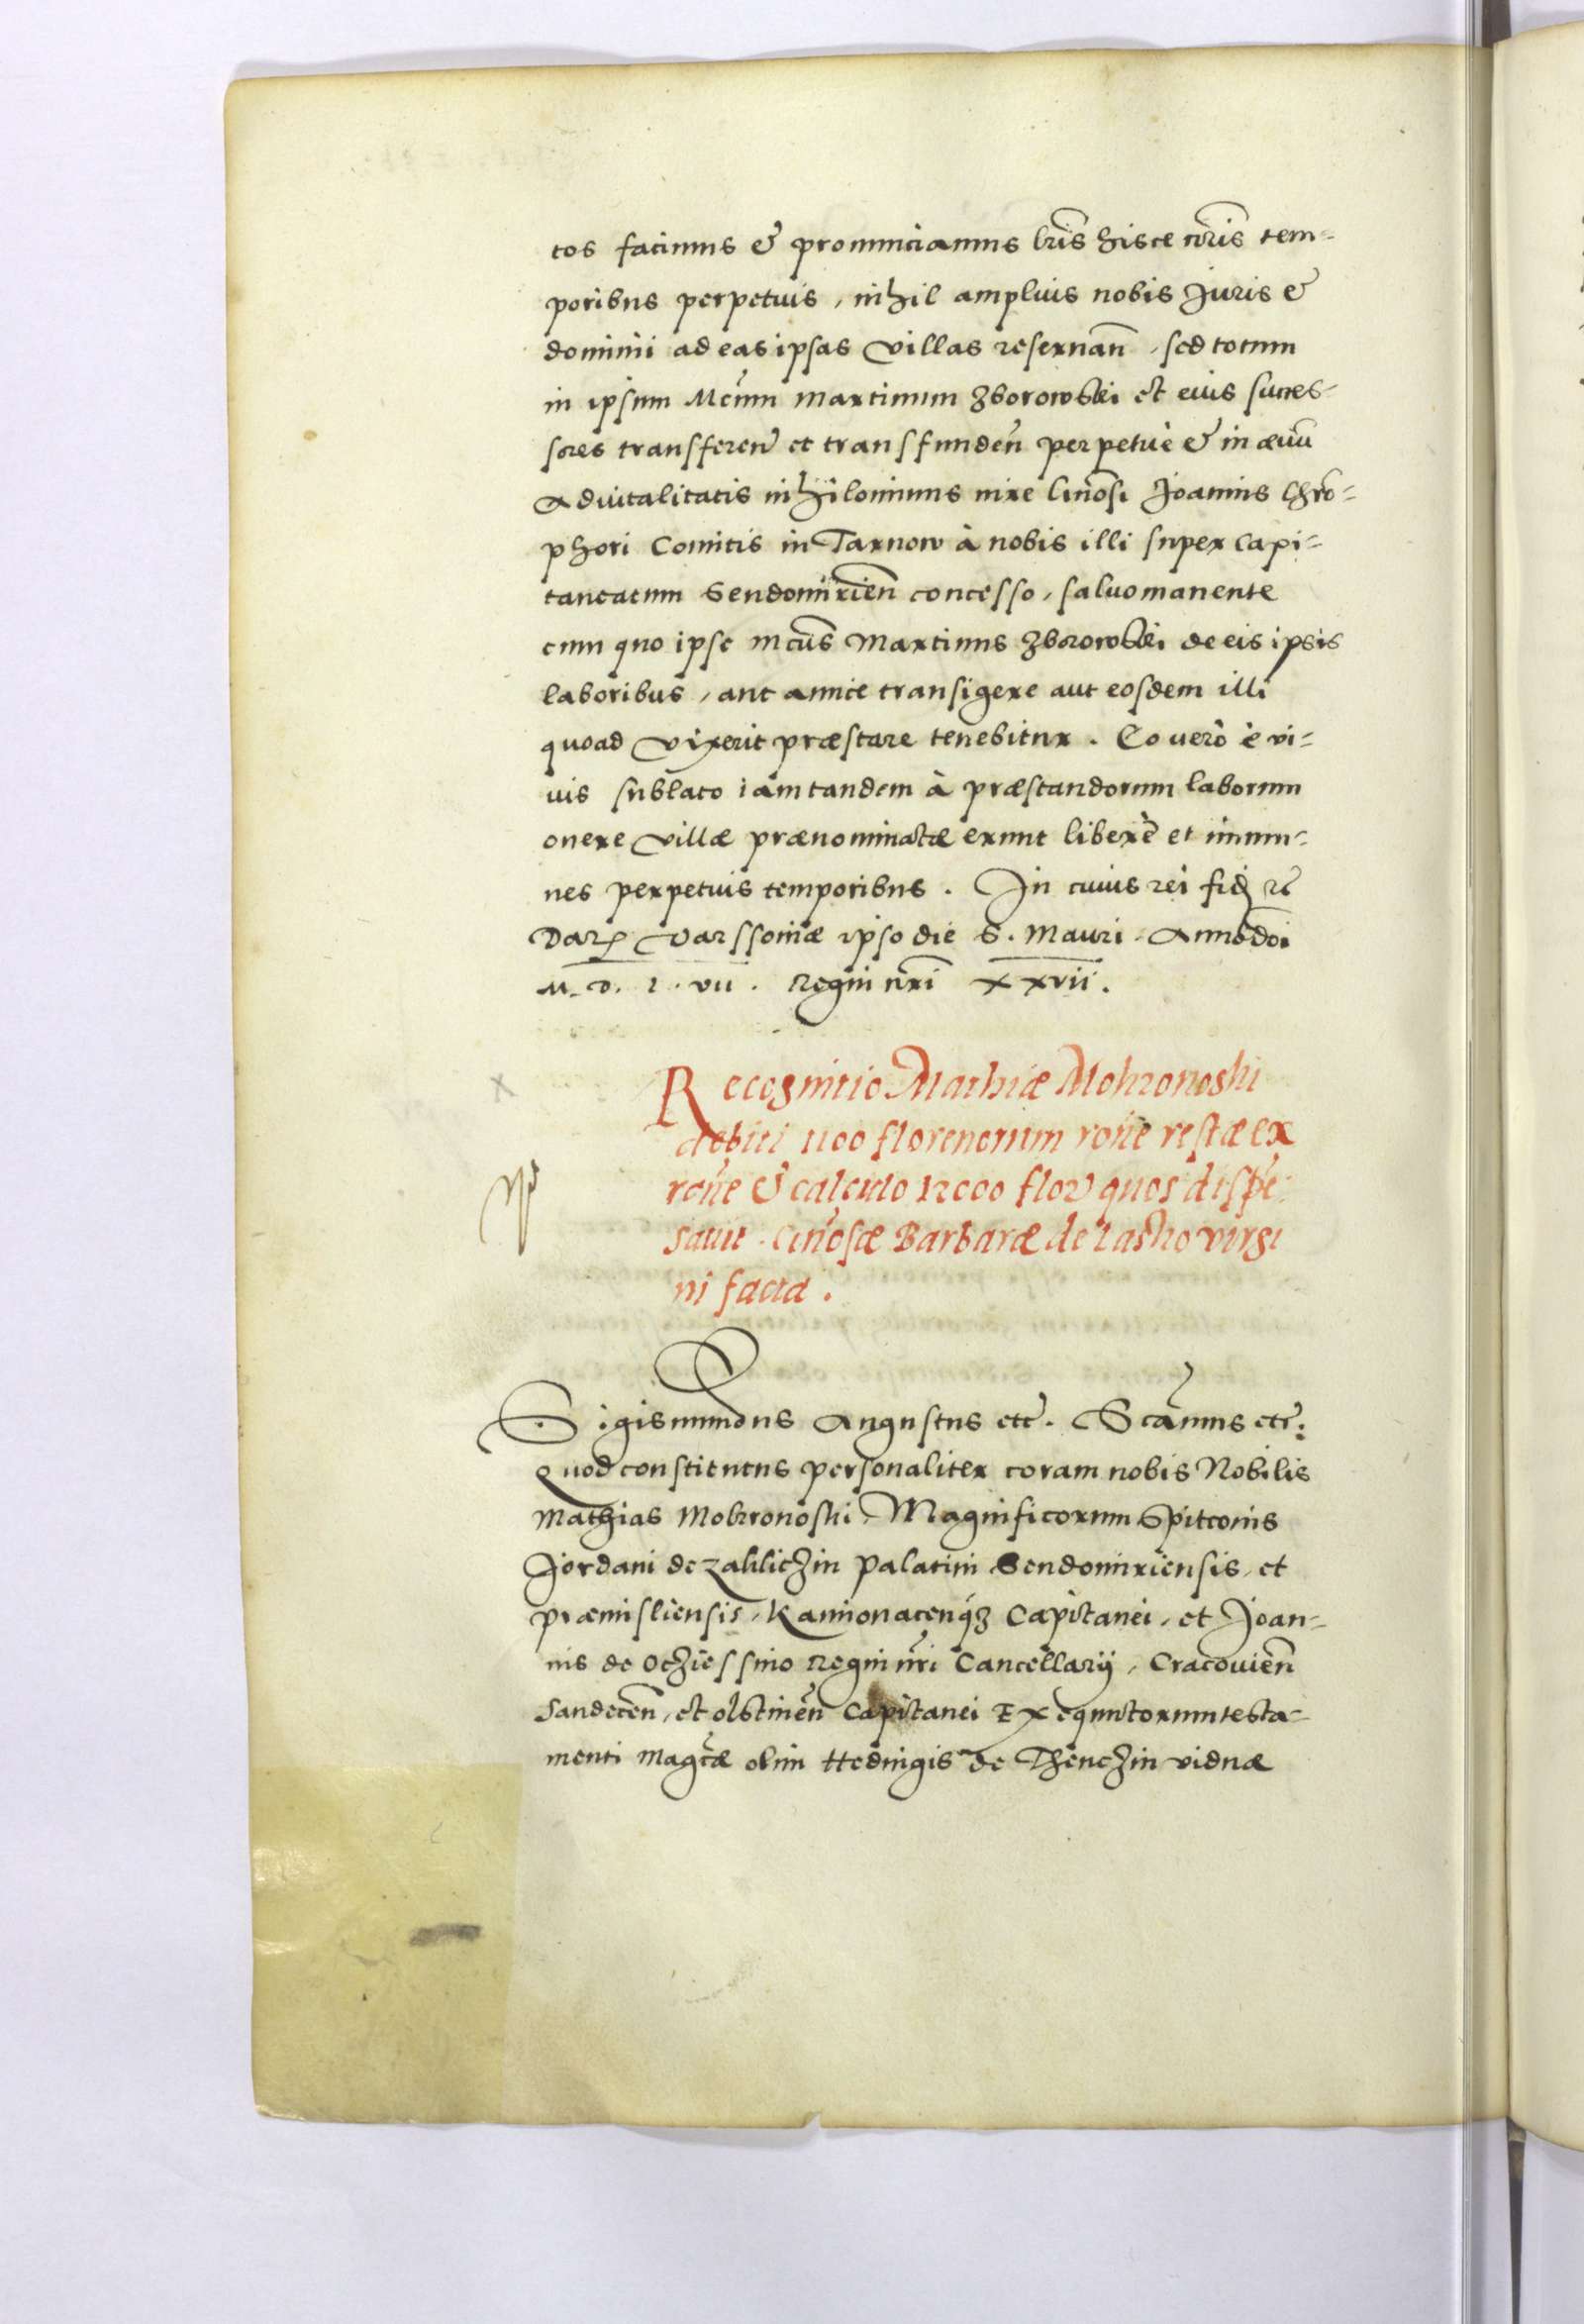 tos facimus & pronunciamus lris hisce nris tem=
poribus perpetuis, nihil amplius nobis Juris &
dominii ad eas ipsas villas reseruan̄, sed totum
in ipsum Mcum Martinum Zborowski et eius succes=
sores transferen̄ et transfunden̄ perpetuè & in æuū
Aduitalitatis nihilominus iure Gnosi Joannis Chro=
phori Comitis in Tarnow à nobis illi super Capi=
taneatum Sendomirien̄ concesso, saluo manente
cum quo ipse Mcus Martinus Zborowski de eis ipsis
laboribus, aut amice transigere aut eosdem illi
quoad vixerit præstare tenebitur. Eo uerò è vi=
uis sublato iam tandem à præstandorum laborum
onere villæ prænominatæ erunt liberè et immu=
nes perpetuis temporibus. In cuius rei fid̄ &c̄
Dat̄ Varssoniæ ipso die S. Mauri. Anno Doi
M. D. L. VII. Regni nri XXVII.
X
Recognitio Mathiæ Mokronoski
debiti 1100 florenorum rōne restæ ex
rōne & calculo 12000 flor̄ quos dispē
sauit. Gnosæ Barbaræ de Lasko virgi
ni facta.
Sigismundus Augustus etc̄. Scamus etc̄.
Quod constitutus personaliter coram nobis Nobilis
Mathias Mokronoski, Magnificorum Spitconis
Jordani de Zaklichin Palatini Sendomiriensis, et
Præmisliensis, Kamionacenq3 Capitanei, et Joan=
nis de Ochiessino Regni nri Cancellarij, Cracouien̄
Sandecen̄, et Olstinen̄ Capitanei Exequutorum testa=
menti Magcæ olim Heduigis de Thenchin viduæ